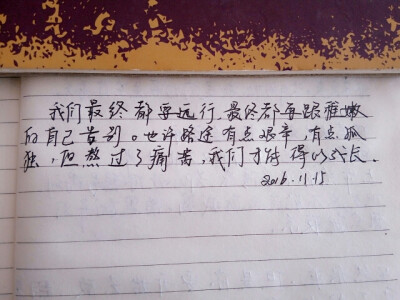 我们最终都要远行,最终都要跟稚嫩
的自己告别。也许路途有点艰辛,有点孤
独,但熬过了痛苦,我们才能得以成长.
2016.11.15